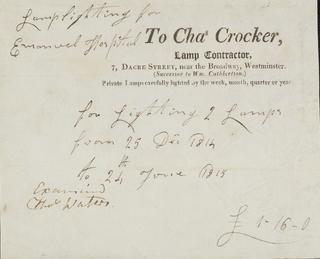 Lamplighting for
Emanuel Hospital
To Chaˢ Crocker,
Lamp Contractor,
7, Dacre Street, near the Broadway, Westminster.
(Successor to Wm. Cuthbertson.)
Private Lamps carefully lighted by the week, month, quarter or year
for Lighting 2 Lamps
from 25 Dec 1814
to 24th June 1815
Examined
Waters.
£ 1-16-0